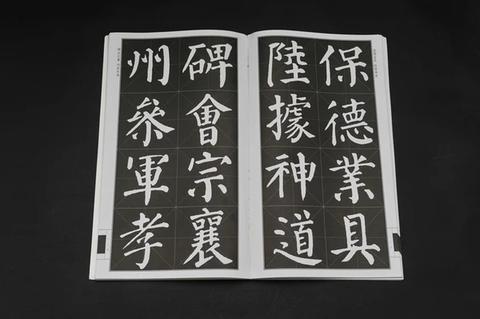 保德業具
陸據神道
碑會宗襄
州叅軍孝